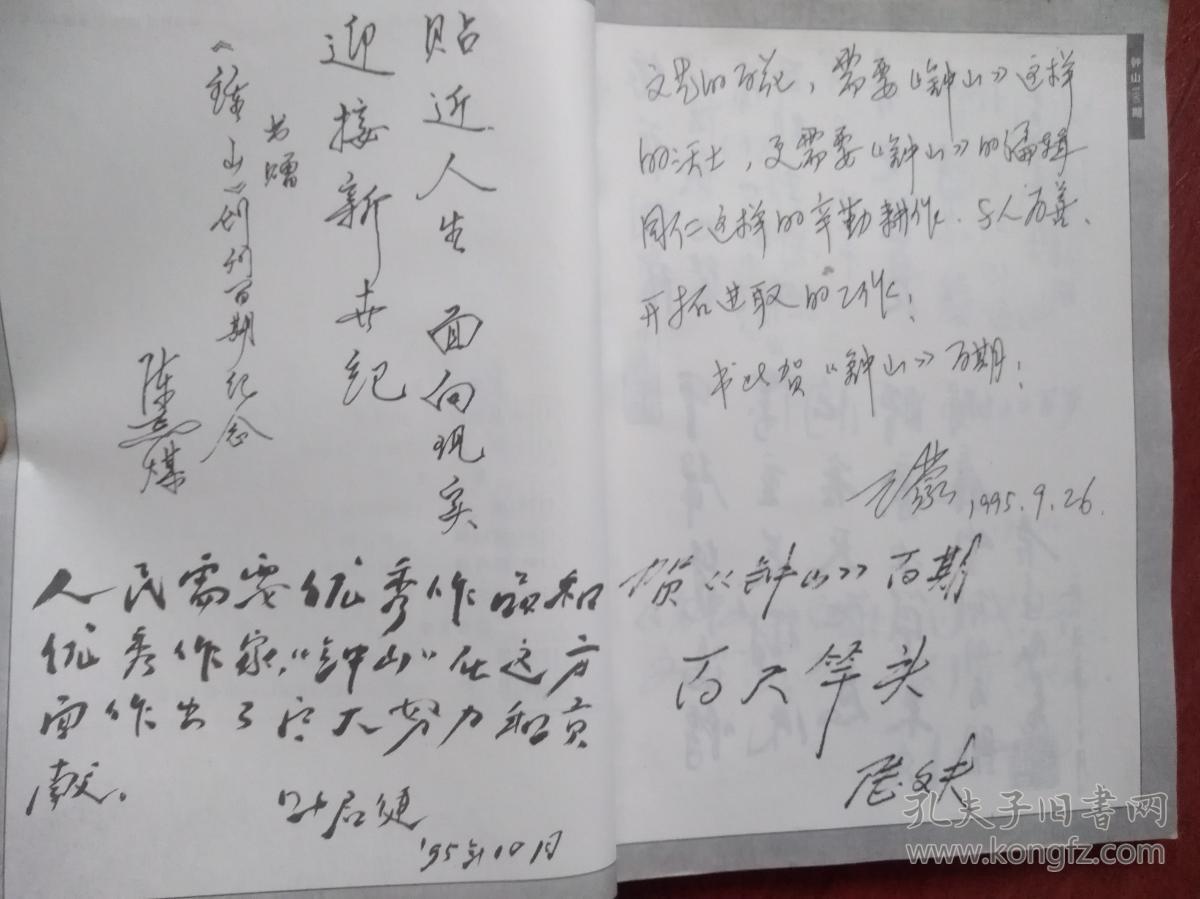 贴近人生 面向现实
迎接新世纪
书赠
《钟山》创刊百期纪念
陈荒煤
人民需要优秀作品和
优秀作家，“钟山”在这方
面作出了巨大努力和贡
献。
叶君健
'95年10月
钟山100期
文艺的百花，需要《钟山》这样
的沃土，更需要《钟山》的编辑
同仁这样的辛勤耕作、与人为善、
开拓进取的工作！
书此贺《钟山》百期！
王蒙 1995.9.26.
贺《钟山》百期
百尺竿头
陆文夫
孔夫子旧书网
www.kongfz.com